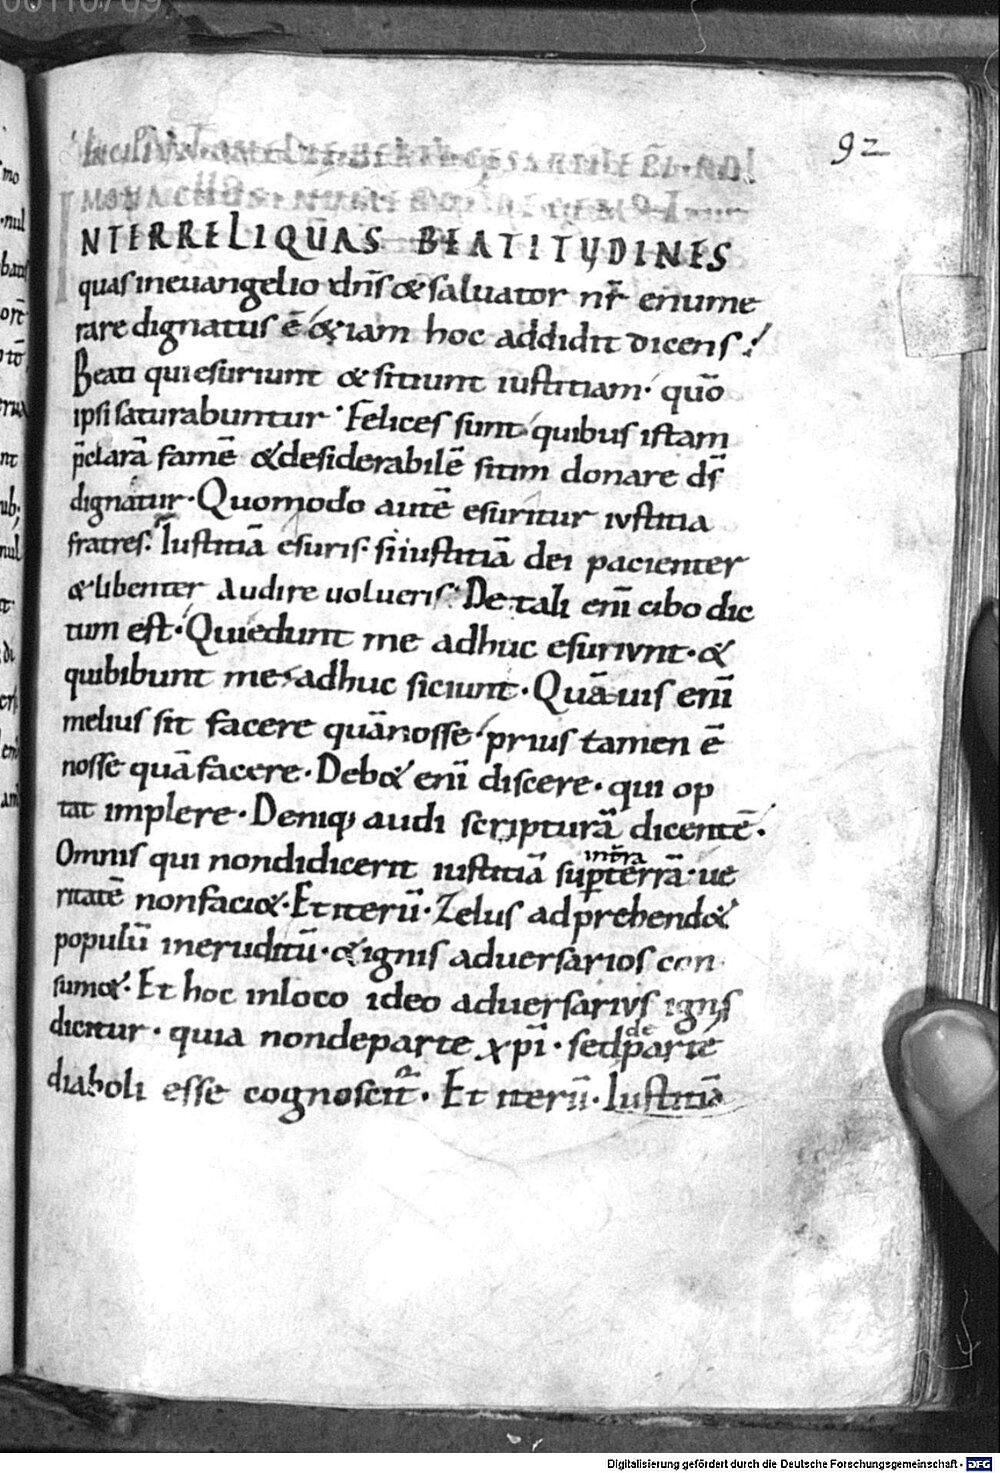 92
NTERRELIQUAS BEATITUDINES
quas ineuangelio dn̄s & saluator nr̄ enume
rare dignatus ē & iam hoc addidit dicens.
Beati quiesuriunt & sitiunt iustitiam· quō
ipsi saturabuntur· Felices sunt quibus istam
p̄clarā famē & desiderabilē sitim donare ds̄
dignatur· Quomodo autē esuritur iustitia
fratres. Iustitiā esuris· si iustitiā dei pacienter
& libenter audire uolueris· De tali enī cibo dic
tum est· Quiedunt me adhuc esuriunt· &
quibibunt me adhuc siciunt· Quāuis enī
melius sit facere quānosse· prius tamen ē
nosse quā facere· Deb& enī discere· qui op
tat implere· Deniq; audi scripturā dicentē·
Omnis qui nondidicerit iustitiā sup terrā· ue
ritatē nonfaci&· Et iterū· Zelus adprehend&
populū ineruditū· & ignis aduersarios con
sum&· Et hoc inloco ideo aduersarius ignis
dicitur· quia nondeparte xp̄i· sed de parte
diaboli esse cognoscit̄· Et iterū· Iustitiā
Digitalisierung gefördert durch die Deutsche Forschungsgemeinschaft - DFG